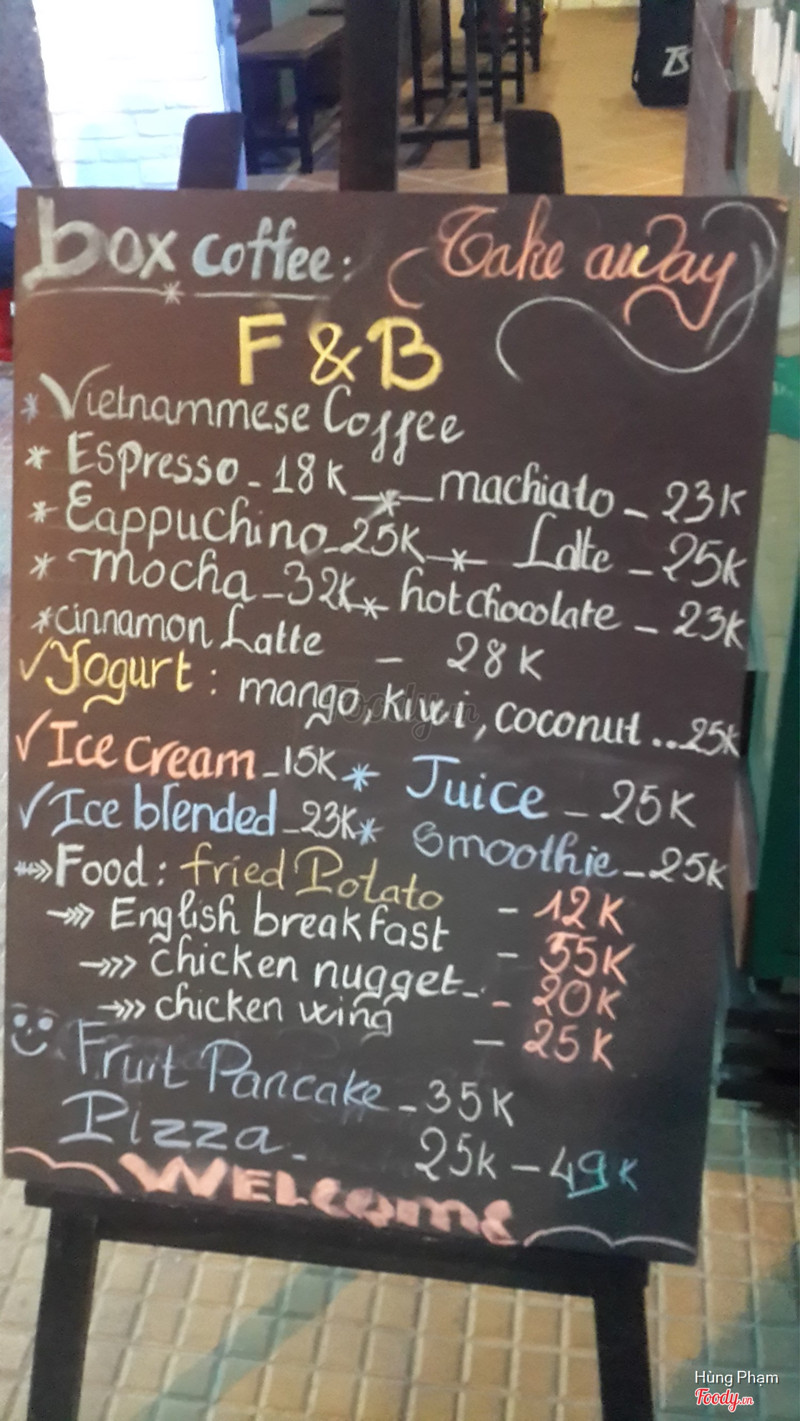 box coffee: Take away
F & B
* Vietnammese Coffee
* Espresso - 18K * machiato - 23K
* Cappuchino - 25K * Latte - 25K
* mocha - 32K * hot chocolate - 23K
* cinnamon Latte - 28K
✓ Yogurt: mango, kiwi, coconut .. 25K
✓ Ice cream - 15K * Juice - 25K
✓ Ice blended - 23K * Smoothie - 25K
Food: fried Potato - 12K
English breakfast - 55K
chicken nugget - 20K
chicken wing - 25K
Fruit Pancake - 35K
Pizza - 25K - 49K
WELCOME
Foody.vn
Hùng Phạm
Foody.vn